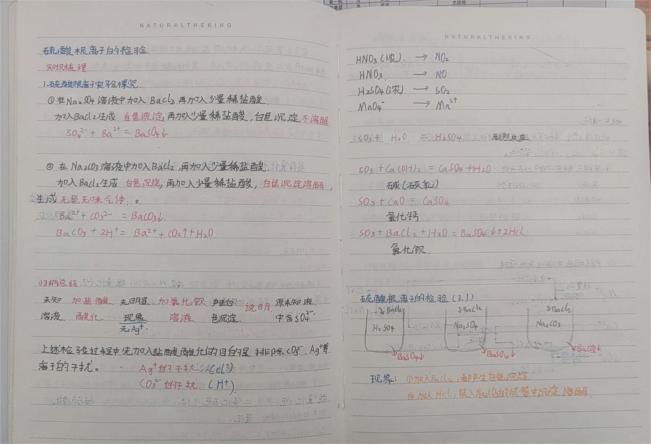 NATURALTHEKING
硫酸根离子的检验
知识梳理
1.硫酸根离子实验探究
①在Na₂SO₄溶液中加入BaCl₂再加入少量稀盐酸
加BaCl₂生成 白色沉淀,再加入少量稀盐酸,白色沉淀不溶解
SO₄²⁻ + Ba²⁺ = BaSO₄↓
② 在Na₂CO₃溶液中加入BaCl₂,再加入少量稀盐酸
加入BaCl₂生成 白色沉淀,再加入少量稀盐酸,白色沉淀溶解,
生成无色无味气体。
Ba²⁺ + CO₃²⁻ = BaCO₃↓
BaCO₃ + 2H⁺ = Ba²⁺ + CO₂↑ + H₂O
归纳总结
未知 加盐酸 无明显 加氯化钡 产生白 说明 原未知液
溶液 酸化 现象 溶液 色沉淀 中含SO₄²⁻
无Ag⁺
上述检验过程中先加入盐酸酸化的目的是 排除CO₃²⁻、Ag⁺等
离子的干扰。 Ag⁺的干扰
CO₃²⁻的干扰 (H⁺)
NATURALTHEKING
HNO₃(浓) → NO₂
HNO₃ → NO
H₂SO₄(浓) → SO₂
MnO₄⁻ → Mn²⁺
H₂O = H₂SO₄
SO₃ + Ca(OH)₂ = CaSO₄ + H₂O
SO₃ + CaO = CaSO₄
氧化钙
SO₃ + BaCl₂ + H₂O = BaSO₄↓ + 2HCl
氯化钡
硫酸根离子的检验
BaCl₂ BaCl₂ BaCl₂
H₂SO₄ Na₂SO₄ Na₂CO₃
BaSO₄↓ BaSO₄↓ BaCO₃↓
现象: ①加入BaCl₂,都产生白色沉淀